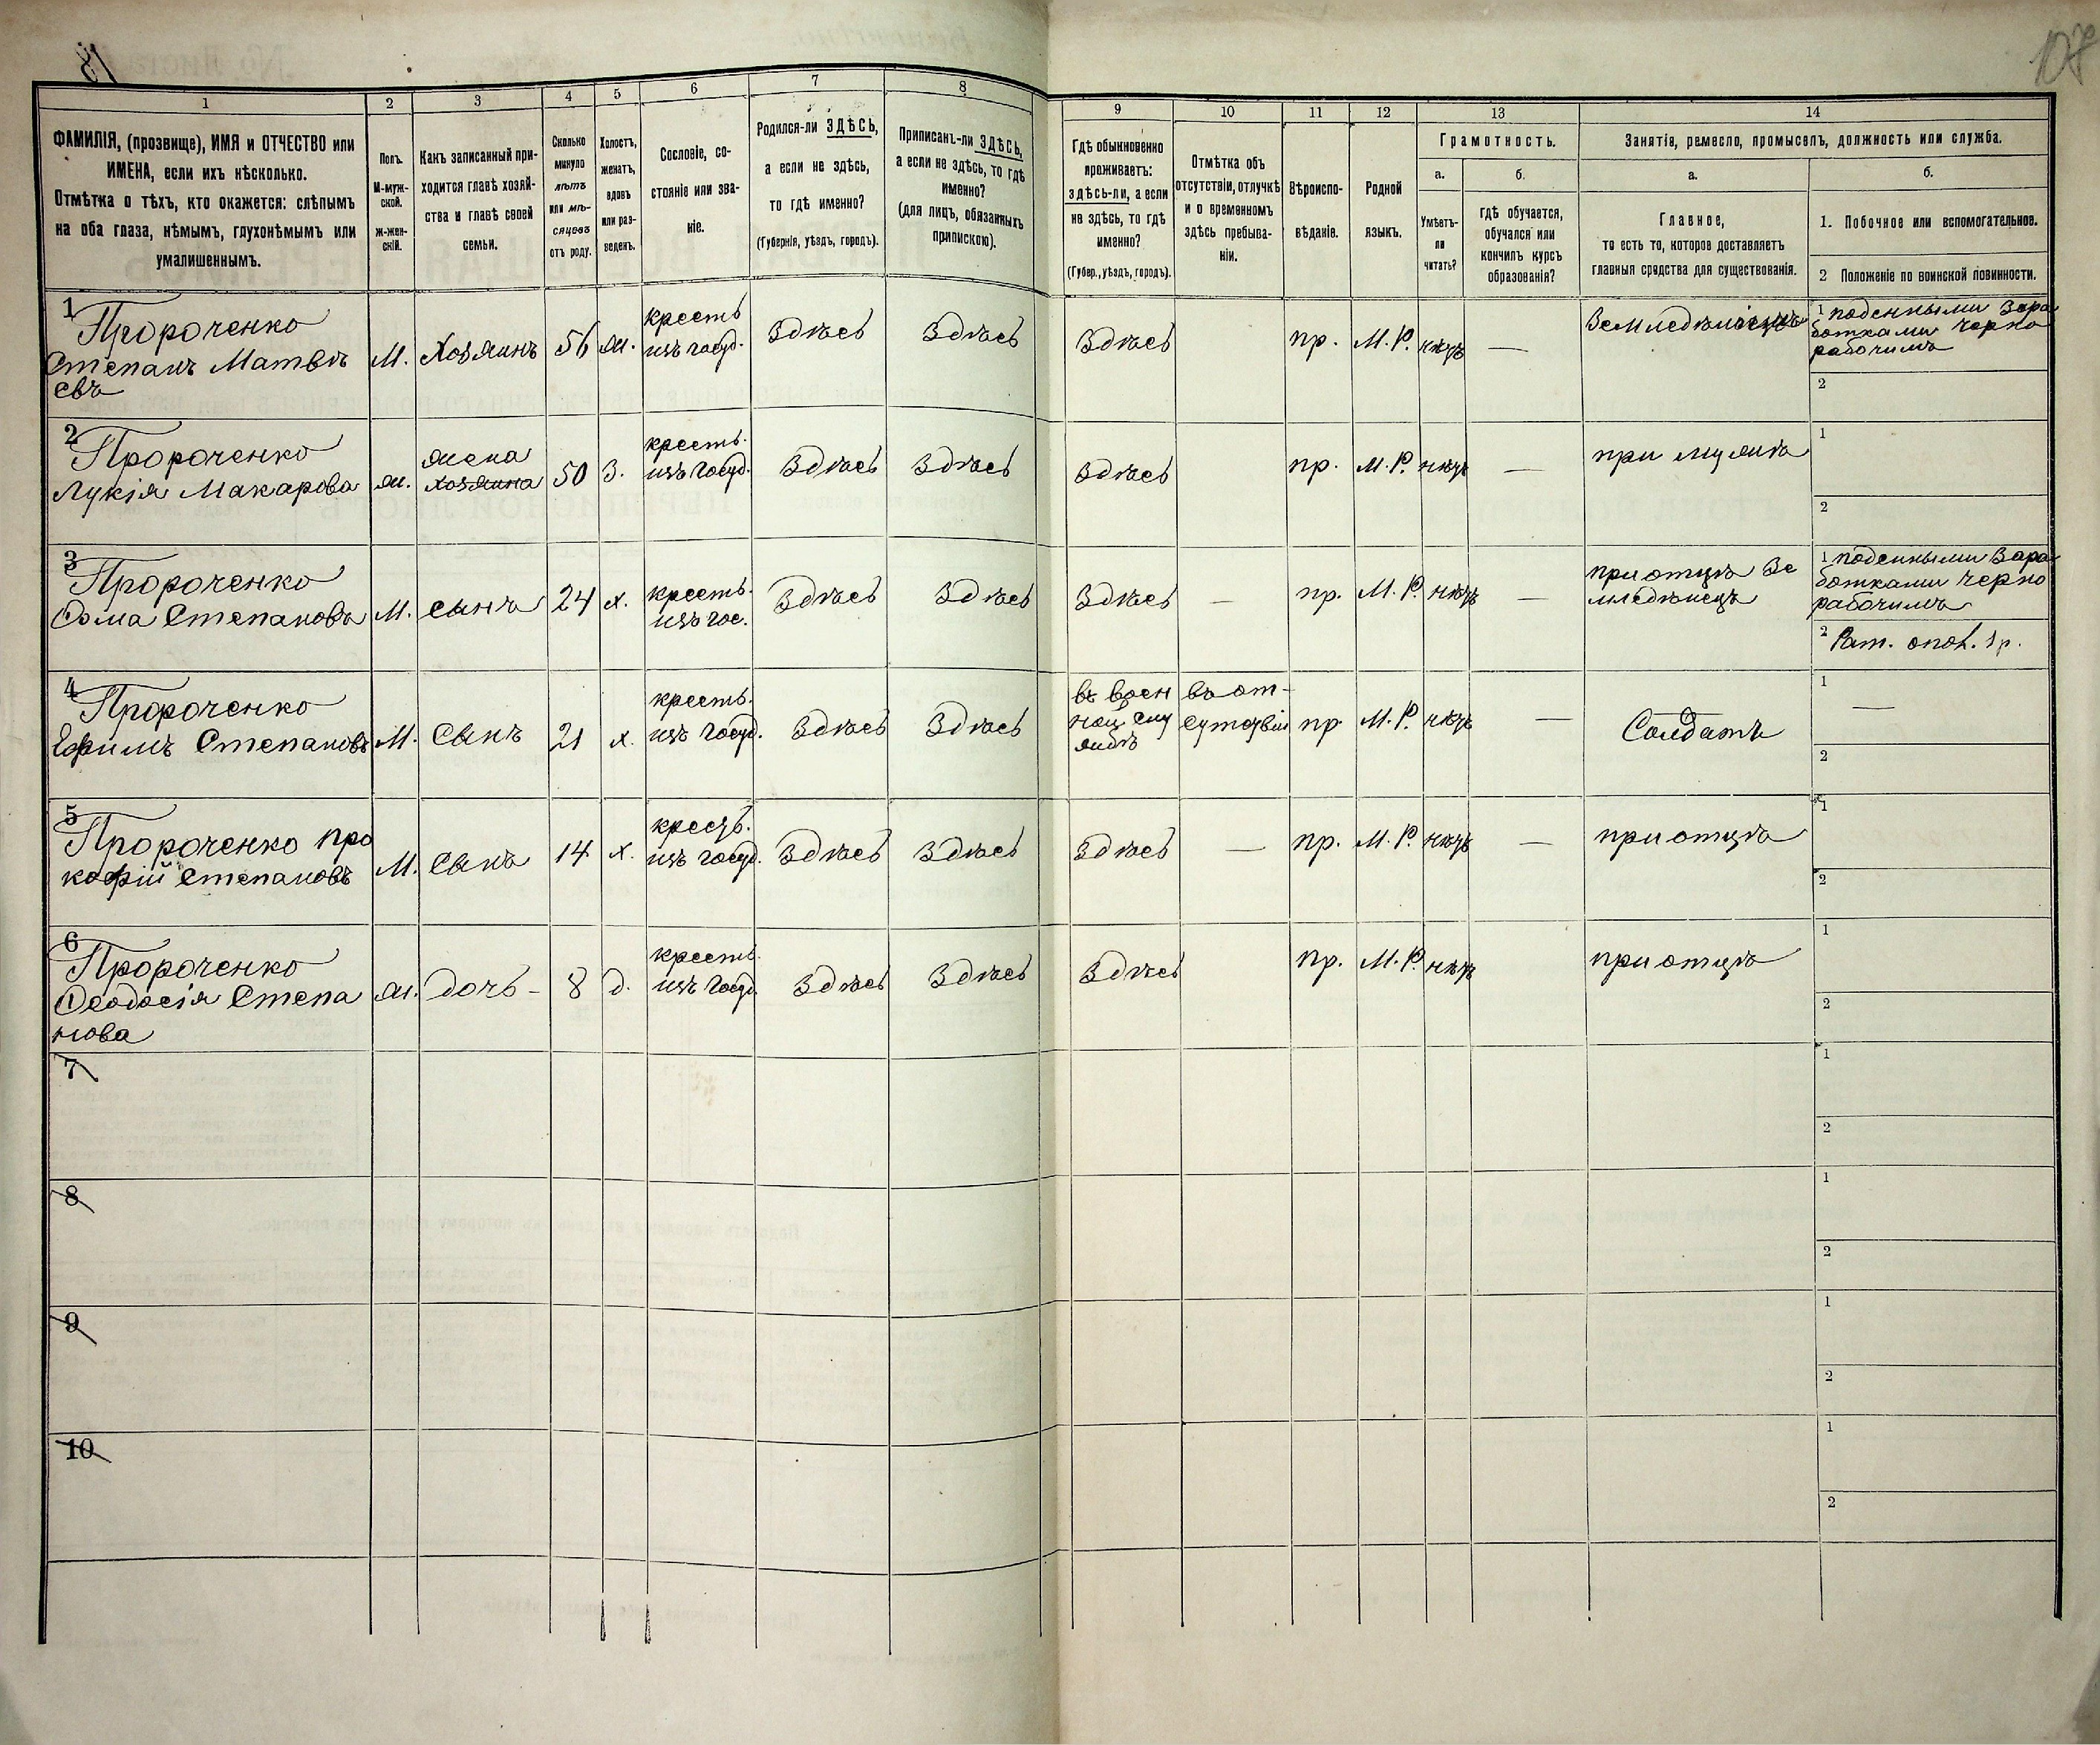 107
1
2
3
4
5
6
7
8
9
10
11
12
13
14
ФАМИЛІЯ, (прозвище), ИМЯ и ОТЧЕСТВО или
ИМЕНА, если ихъ нѣсколько.
Отмѣтка о тѣхъ, кто окажется: слѣпымъ
на оба глаза, нѣмымъ, глухонѣмымъ или
умалишеннымъ.
Полъ.
М-муж-
ской.
ж-жен-
скій.
Какъ записанный при-
ходится главѣ хозяй-
ства и главѣ своей
семьи.
Сколько
минуло
лѣтъ
или мѣ-
сяцевъ
отъ роду.
Холостъ,
женатъ,
вдовъ
или раз-
веденъ.
Сословіе, со-
стояніе или зва-
ніе.
Родился-ли ЗДѢСЬ,
а если не здѣсь,
то гдѣ именно?
(Губернія, уѣздъ, городъ).
Приписанъ-ли ЗДѢСЬ,
а если не здѣсь, то гдѣ
именно?
(для лицъ, обязанныхъ
припискою).
Гдѣ обыкновенно
проживаетъ:
здѣсь-ли, а если
не здѣсь, то гдѣ
именно?
(Губер., уѣздъ, городъ).
Отмѣтка объ
отсутствіи, отлучкѣ
и о временномъ
здѣсь пребыва-
ніи.
Вѣроиспо-
вѣданіе.
Родной
языкъ.
Грамотность.
а.
Умѣетъ-
ли
читать?
б.
гдѣ обучается,
обучался или
кончилъ курсъ
образованія?
Занятія, ремесло, промыселъ, должность или служба.
а.
Главное,
то есть то, которое доставляетъ
главныя средства для существованія.
б.
1. Побочное или вспомогательное.
2 Положеніе по воинской повинности.
1
Пророченко
Степанъ Матвѣ
евъ
М.
Хозяинъ
56
ж.
кресть
изъ госуд.
Здѣсь
Здѣсь
Здѣсь
пр.
М. Р.
нѣтъ
—
Земледѣлецъ
1 поденными зара
ботками черно
рабочимъ
2
2
Пророченко
Лукія Макарова
ж.
жена
хозяина
50
З.
кресть.
изъ госуд.
Здѣсь
Здѣсь
Здѣсь
пр.
М. Р.
нѣтъ
—
при мужѣ
1
2
3
Пророченко
Фома Степановъ
М.
сынъ
24
х.
кресть.
изъ гос.
Здѣсь
Здѣсь
Здѣсь
—
пр.
М. Р.
нѣтъ
—
при отцѣ зе
мледѣлецъ
1 поденными зара
ботками черно
рабочимъ
2 Рат. опол. 1 р.
4
Пророченко
Ефимъ Степановъ
М.
Сынъ
21
х.
кресть.
изъ госуд.
Здѣсь
Здѣсь
въ воен
ной слу
жбѣ
въ от-
сутствіи
пр
М. Р.
нѣтъ
—
Солдатъ
1
—
2
5
Пророченко Про
кофій Степановъ
М.
Сынъ
14
х.
кресть.
изъ госуд.
Здѣсь
Здѣсь
Здѣсь
—
пр.
М. Р.
нѣтъ
—
при отцѣ
1
2
6
Пророченко
Феодосія Степа
нова
ж.
дочь -
8
д.
кресть.
изъ госуд.
Здѣсь
Здѣсь
Здѣсь
пр.
М. Р.
нѣтъ
при отцѣ
1
2
7
1
2
8
1
2
9
1
2
10
1
2